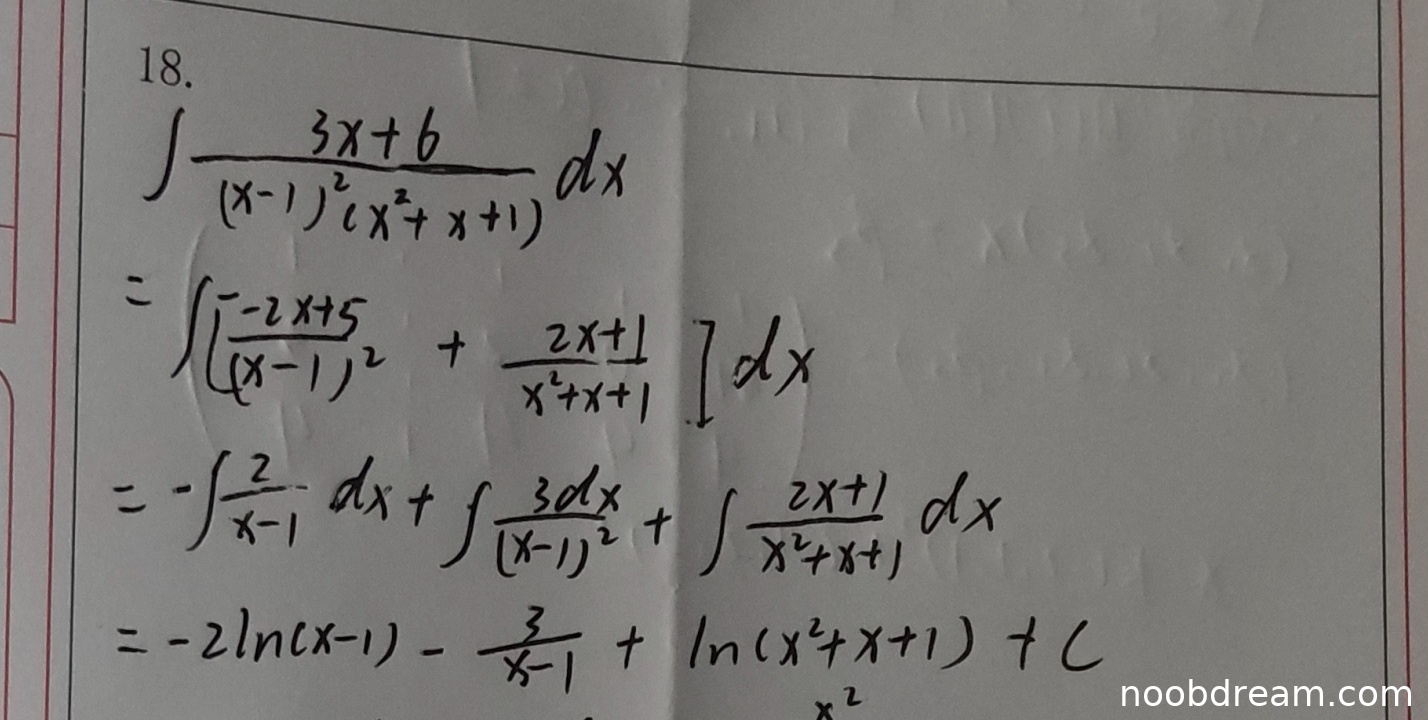 18.
∫ (3x+6)/((x-1)²(x²+x+1)) dx
= ∫[(-2x+5)/(x-1)² + (2x+1)/(x²+x+1)] dx
= -∫ 2/(x-1) dx + ∫ 3dx/(x-1)² + ∫ (2x+1)/(x²+x+1) dx
= -2ln(x-1) - 3/(x-1) + ln(x²+x+1) + C
x²
noobdream.com